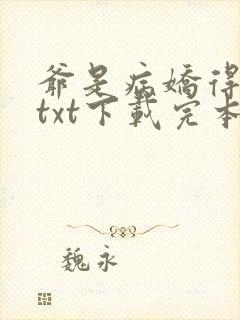 爷是病嬌得
txt下載完本
魏永